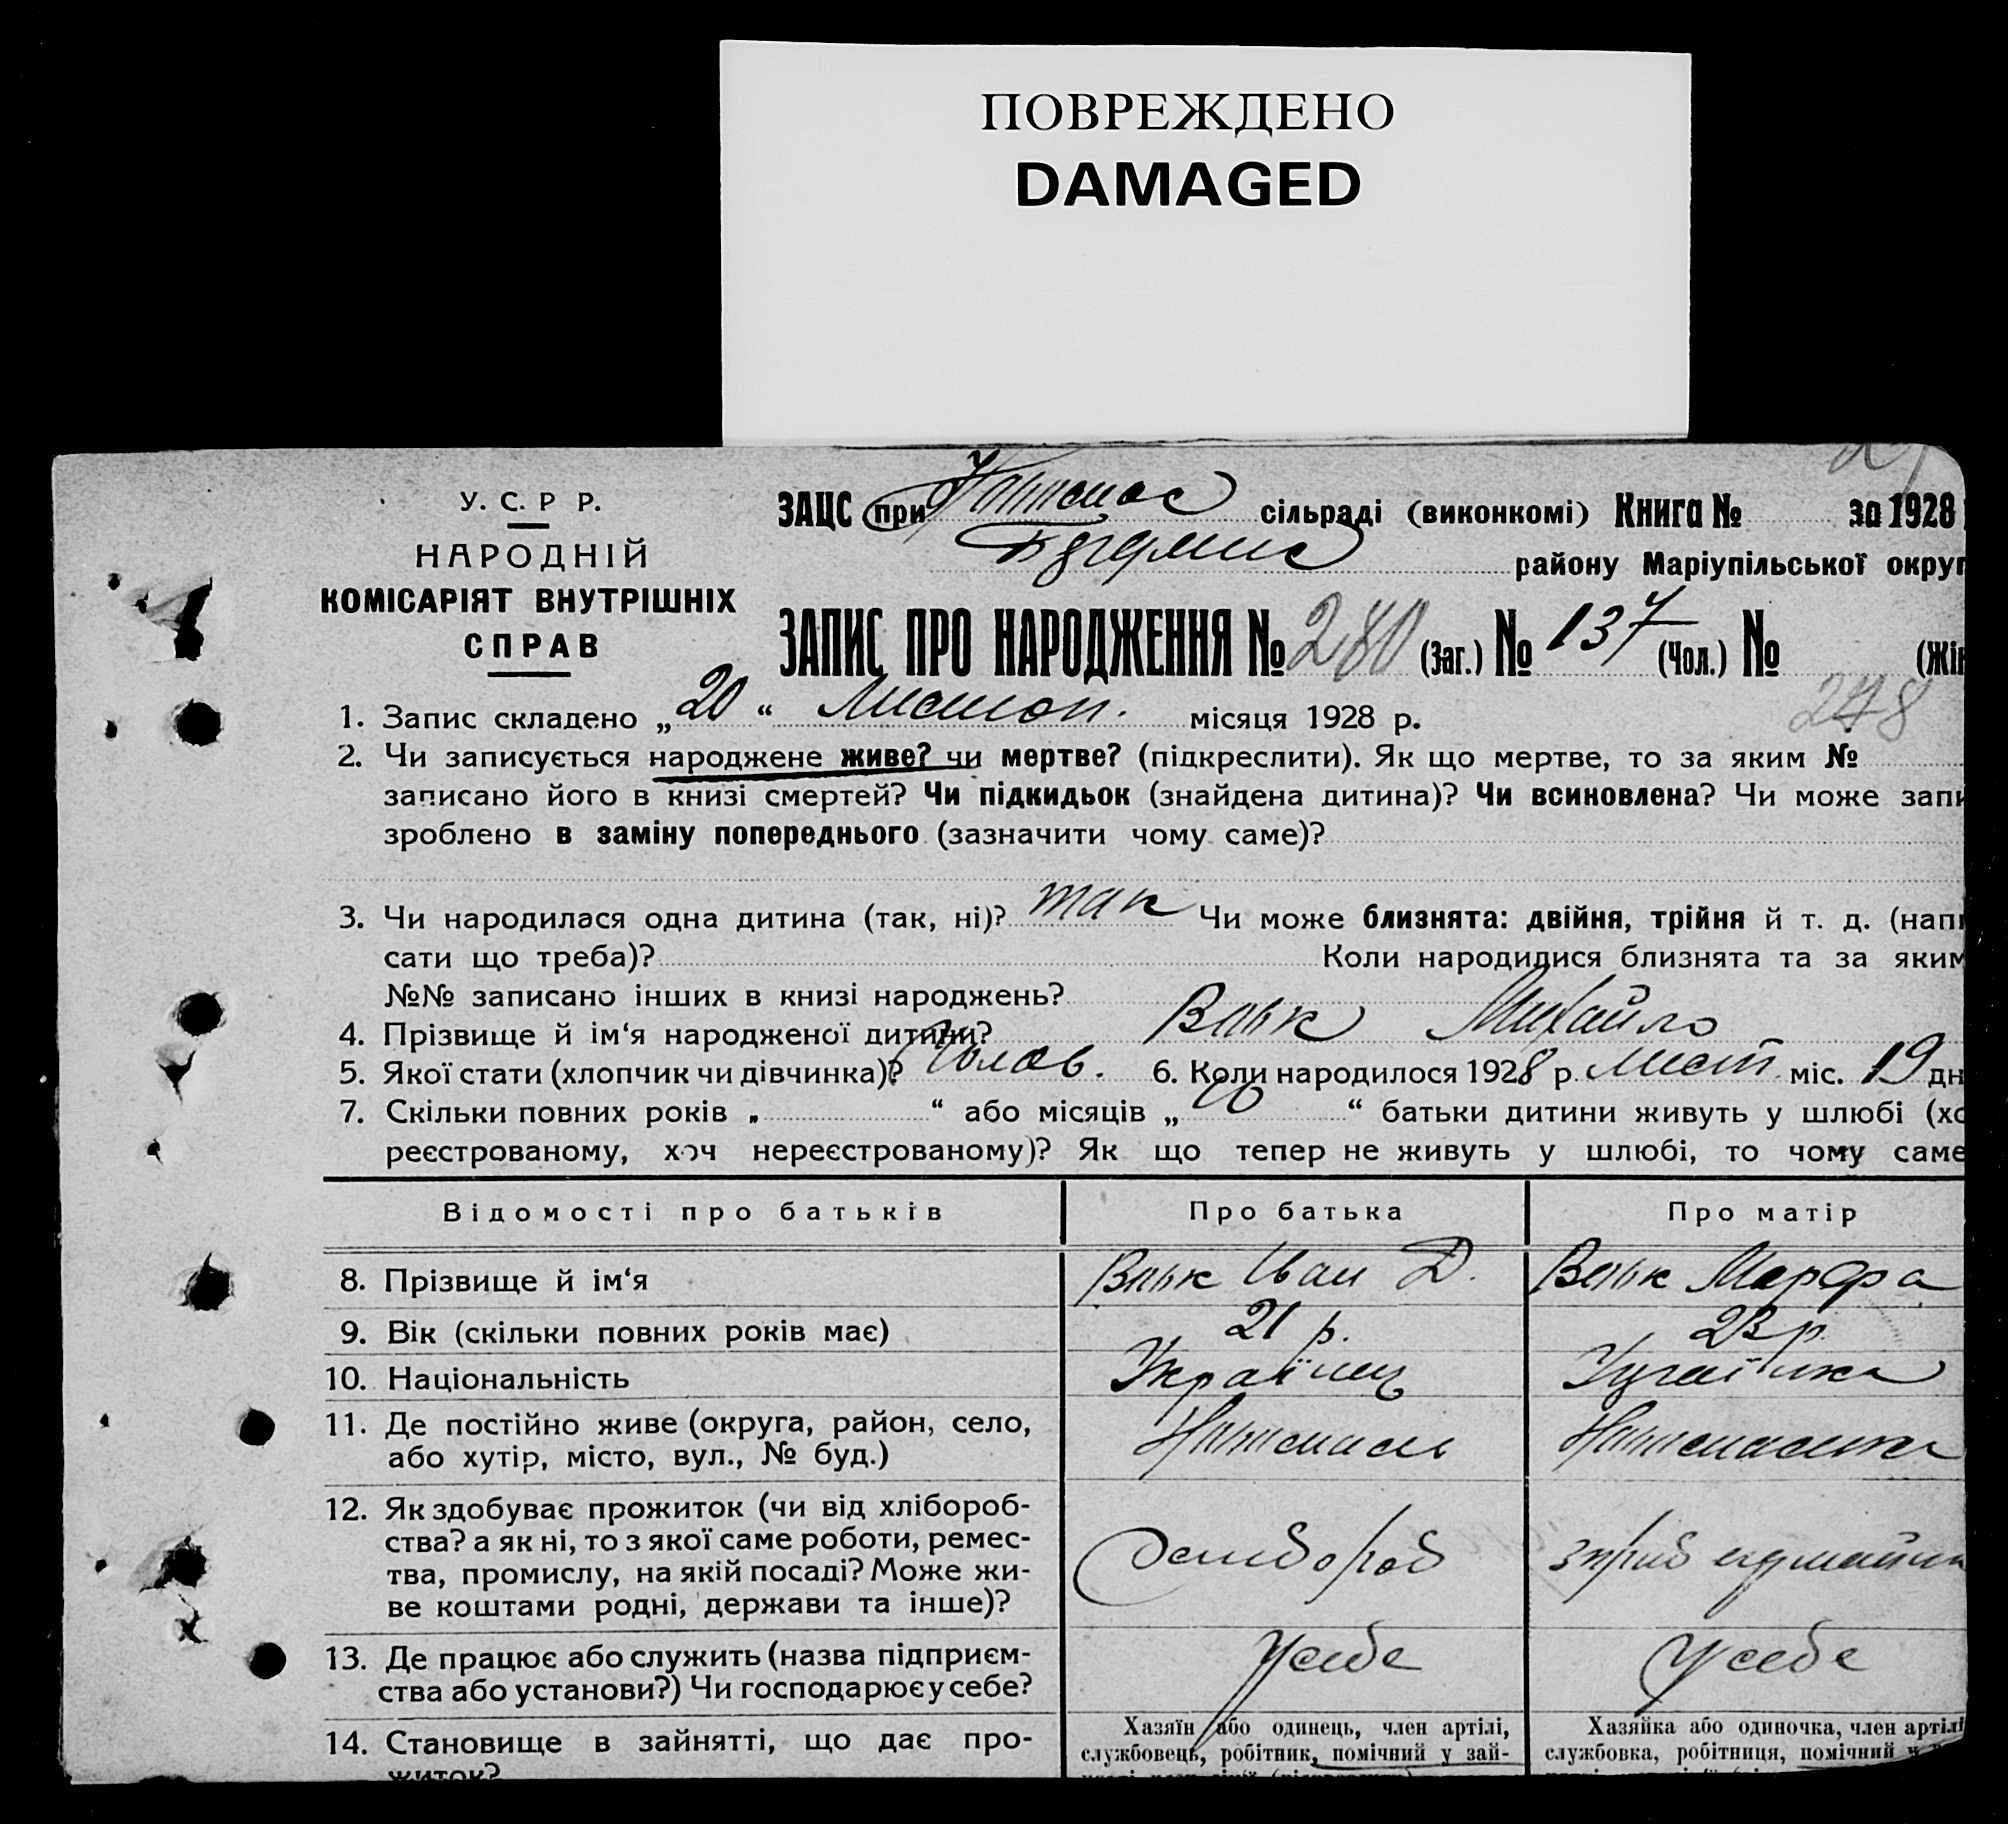 ПОВРЕЖДЕНО
DAMAGED
У. С. Р Р.
НАРОДНІЙ
КОМІСАРІЯТ ВНУТРІШНІХ
СПРАВ
ЗАЦС при сільраді (виконкомі) Книга № за 1928
району Маріупільської округ
ЗАПИС ПРО НАРОДЖЕННЯ № 280 (Заг.) № 137 (Чол.) № (Жін
278
1. Запис складено „20“ Листоп. місяця 1928 р.
2. Чи записується народжене живе? чи мертве? (підкреслити). Як що мертве, то за яким №
записано його в книзі смертей? Чи підкидьок (знайдена дитина)? Чи всиновлена? Чи може запи
зроблено в заміну попереднього (зазначити чому саме)?
3. Чи народилася одна дитина (так, ні)? так Чи може близнята: двійня, трійня й т. д. (напи
сати що треба)? Коли народилися близнята та за яким
№№ записано інших в книзі народжень?
4. Прізвище й ім‘я народженої дитини? Вовк Михайло
5. Якої стати (хлопчик чи дівчинка)? Чолов. 6. Коли народилося 1928 р. Лист міс. 19 дн
7. Скільки повних років „ “ або місяців „ “ батьки дитини живуть у шлюбі (хо
реєстрованому, хоч нереєстрованому)? Як що тепер не живуть у шлюбі, то чому саме
Відомості про батьків Про батька Про матір
8. Прізвище й ім‘я Вовк Іван Д. Вовк Марфа
9. Вік (скільки повних років має) 21 р. 23 р.
10. Національність Українец Украінка
11. Де постійно живе (округа, район, село,
або хутір, місто, вул., № буд.)
12. Як здобуває прожиток (чи від хлібороб-
ства? а як ні, то з якої саме роботи, ремес-
тва, промислу, на якій посаді? Може жи-
ве коштами родні, держави та інше)?
13. Де працює або служить (назва підприєм- У себе У себе
ства або установи?) Чи господарює у себе?
14. Становище в зайнятті, що дає про-
житок?
Хазяїн або одинець, член артілі,
службовець, робітник, помічний у зай-
Хазяйка або одиночка, член артілі
службовка, робітниця, помічний у